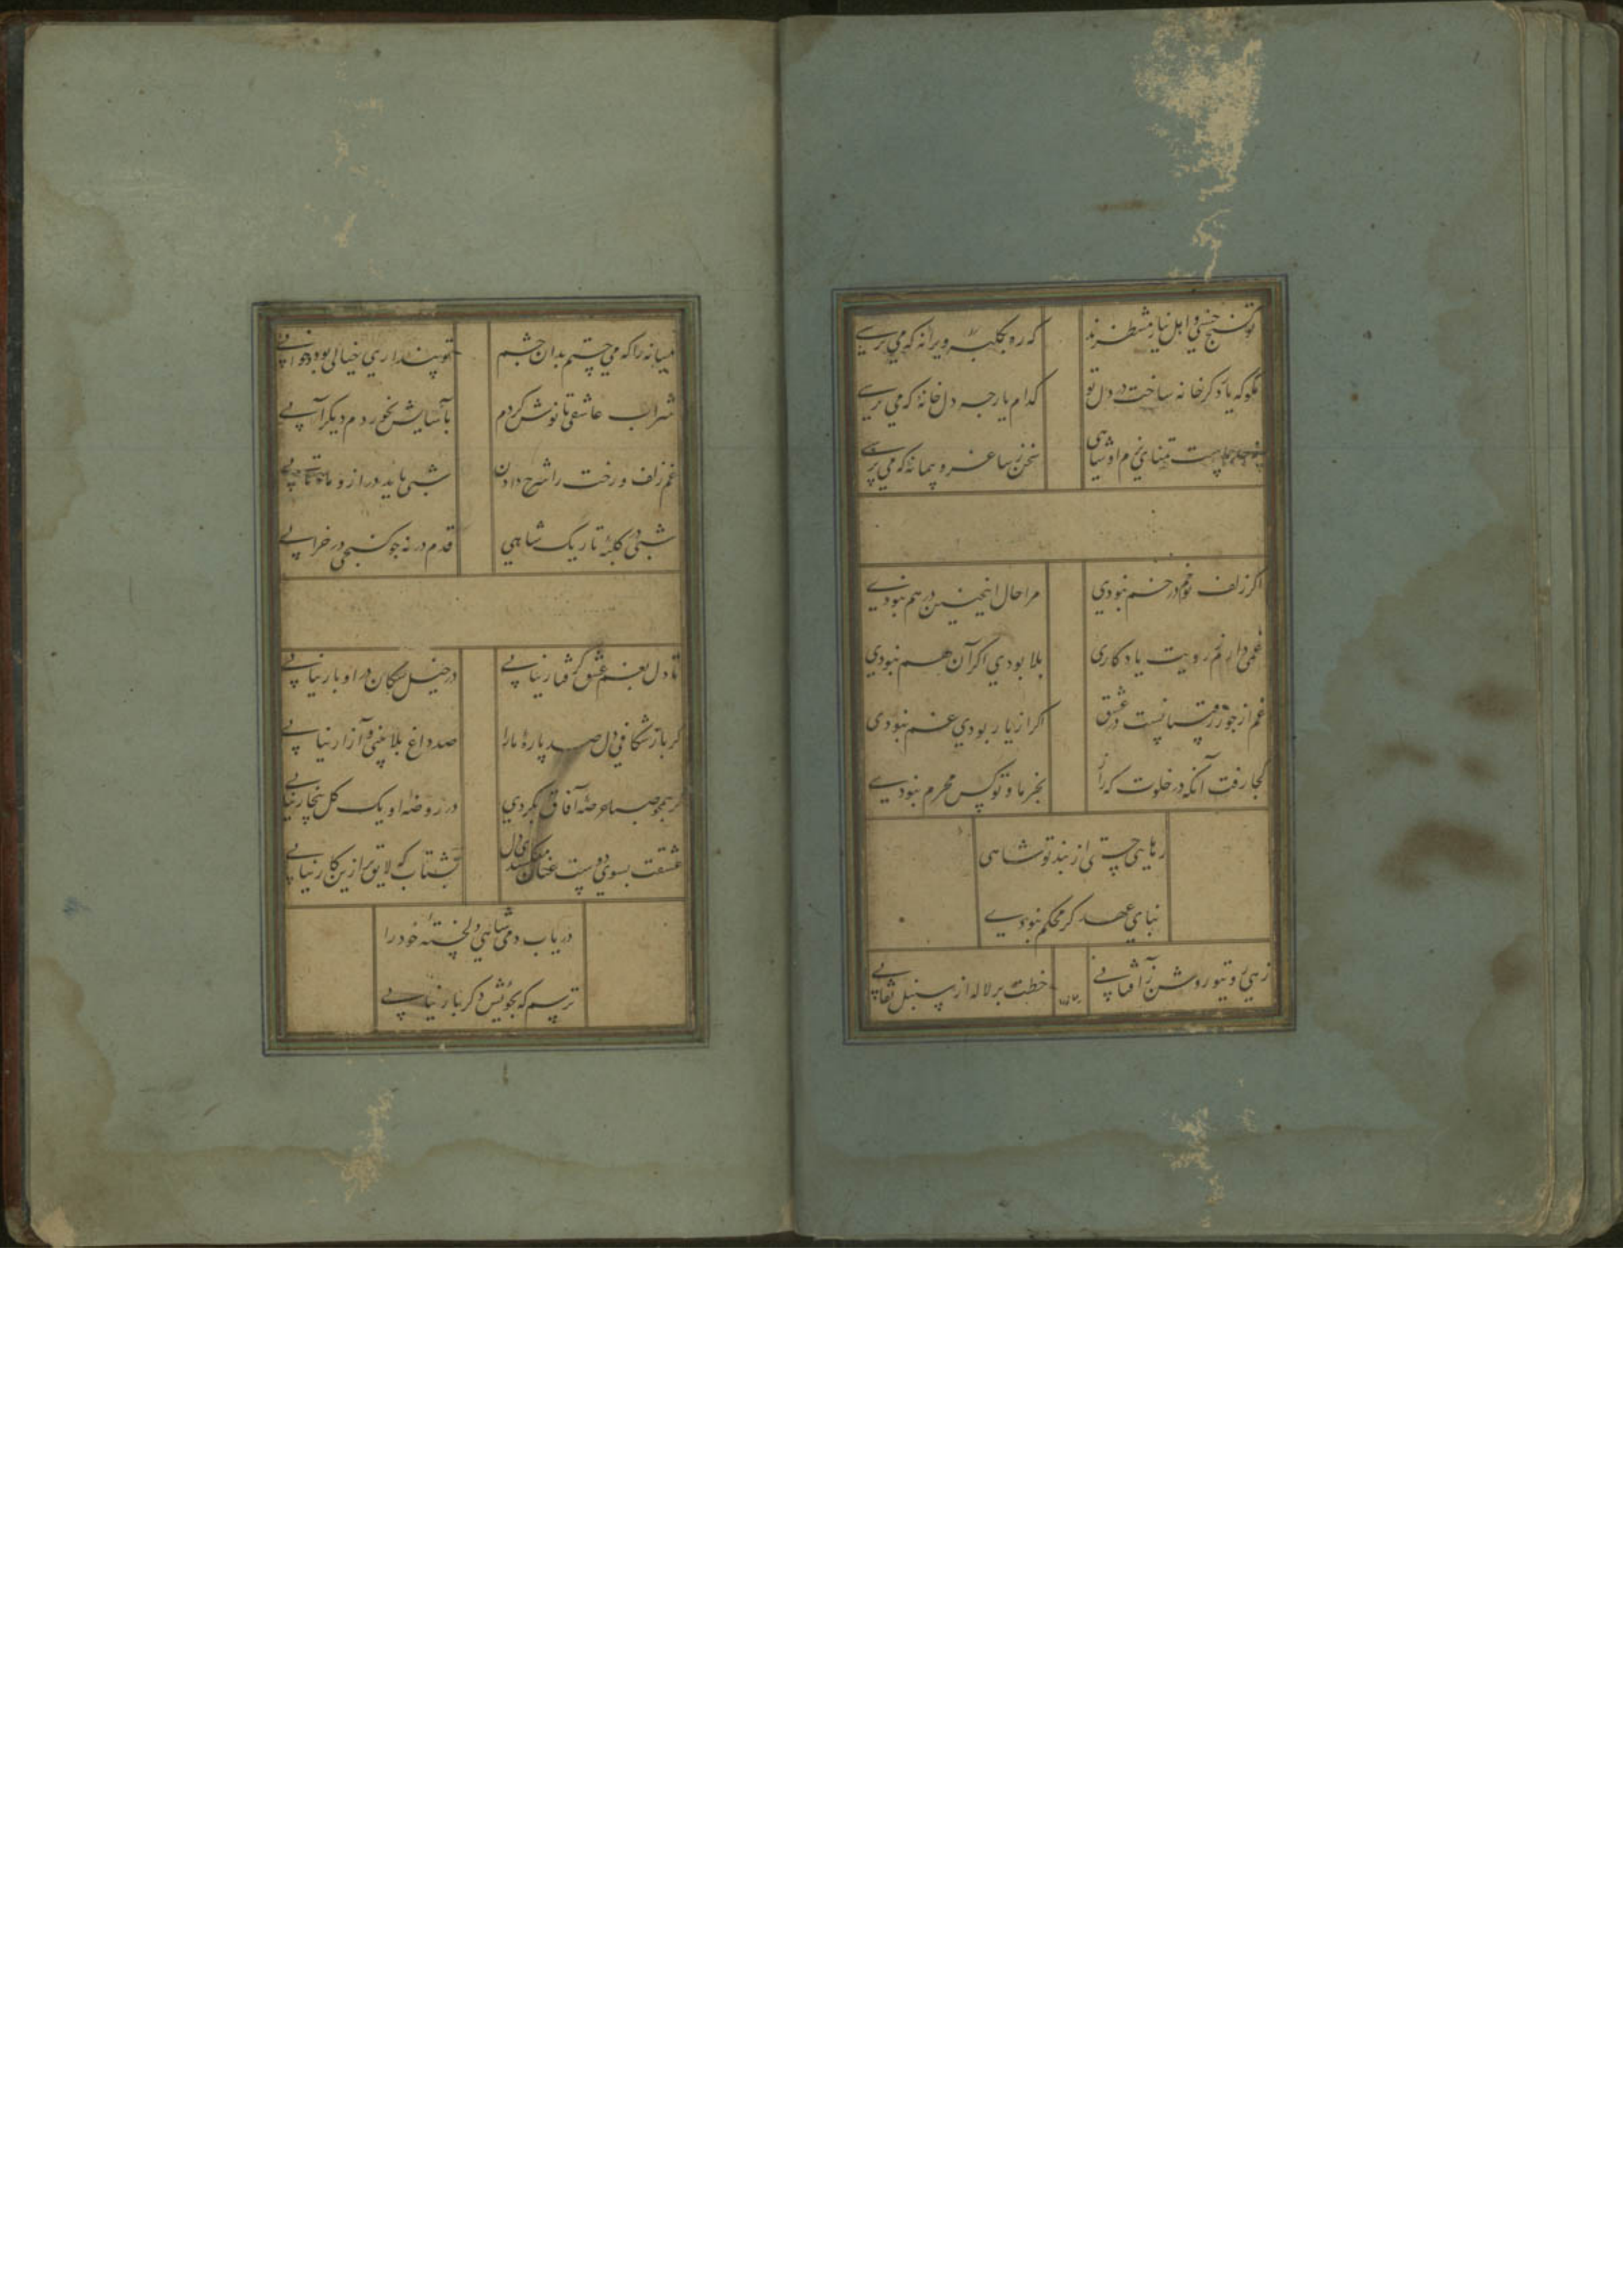 تو گنج حسنی و اهل نیاز منتظرند
که ره بکلبه ویرانه که می پرسی
مگو که یاد کر خانه ساخت در دل تو
کدام یار چه دل خانه که می پرسی
چیست تمنای بزم او شاهی
سخن ز ساغر و پیمانه که می پرسی
اگر زلف تو خم در خم نبودی
مرا حال اینچنین درهم نبودی
غمی دارم ز رویت یادکاری
بلا بودی اگر آن هم نبودی
غم از جور رقیبانست در عشق
اگر از یار بودی غم نبودی
کجا رفت آنکه در خلوت که راز
بجز ما و تو کس محرم نبودی
رهایی جستی از بند تو شاهی
بنای عهد کر محکم نبودی
زهی روی تو روشن ز آفتابی
خطت بر لاله از سنبل نقابی
میانه را که می جستم بدان چشم
تو پنداری خیالی بود و خوابی
شراب عاشقی تا نوش کردم
بآسایش نخوردم دیکر آبی
غم زلف و رخت را شرح دادن
شبی باید دراز و ماهتابی
شبی در کلبه تاریک شاهی
قدم در نه چو کنجی در خرابی
تا دل بغم عشق گرفتار نیابی
در خیل سکان در او بار نیابی
گر باز شکافی دل صد پاره ما را
صد داغ بلا بینی و آزار نیابی
گر همچو صبا عرصه آفاق بگردی
در روضه او یک کل بیخار نیابی
عشقت بسوی دوست عنان میکشد ای دل
بشتاب که لایق تر ازین کار نیابی
دریاب دمی شاهی دلخسته خود را
ترسم که بجوئیش و کر بار نیابی